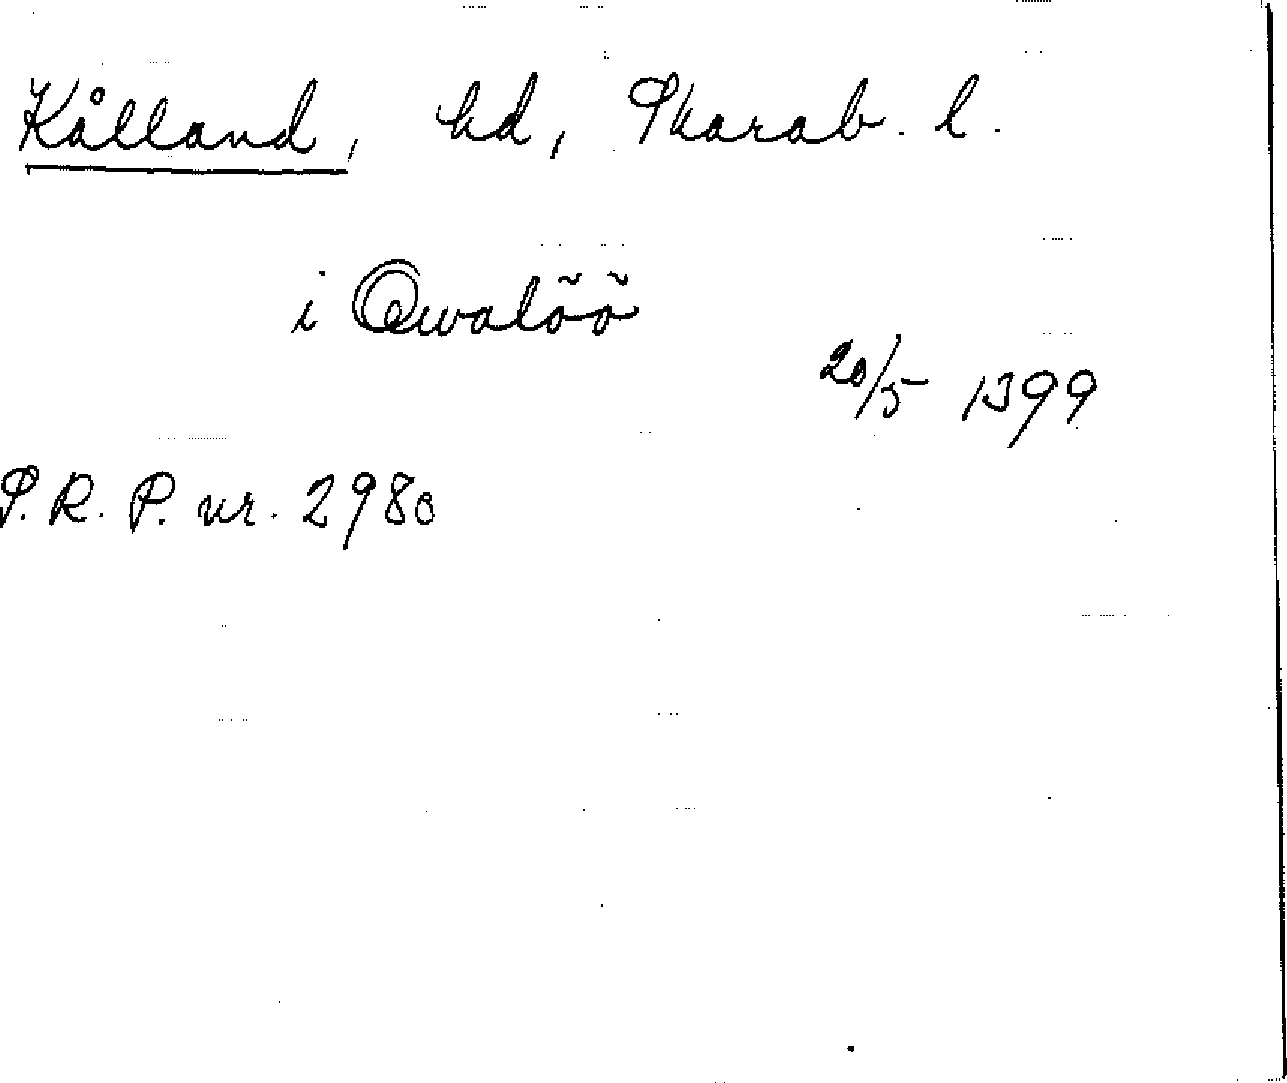 Kålland, hd, Skarab. l.
i Qwalöö
20/5 1399
S.R.P. nr. 2980